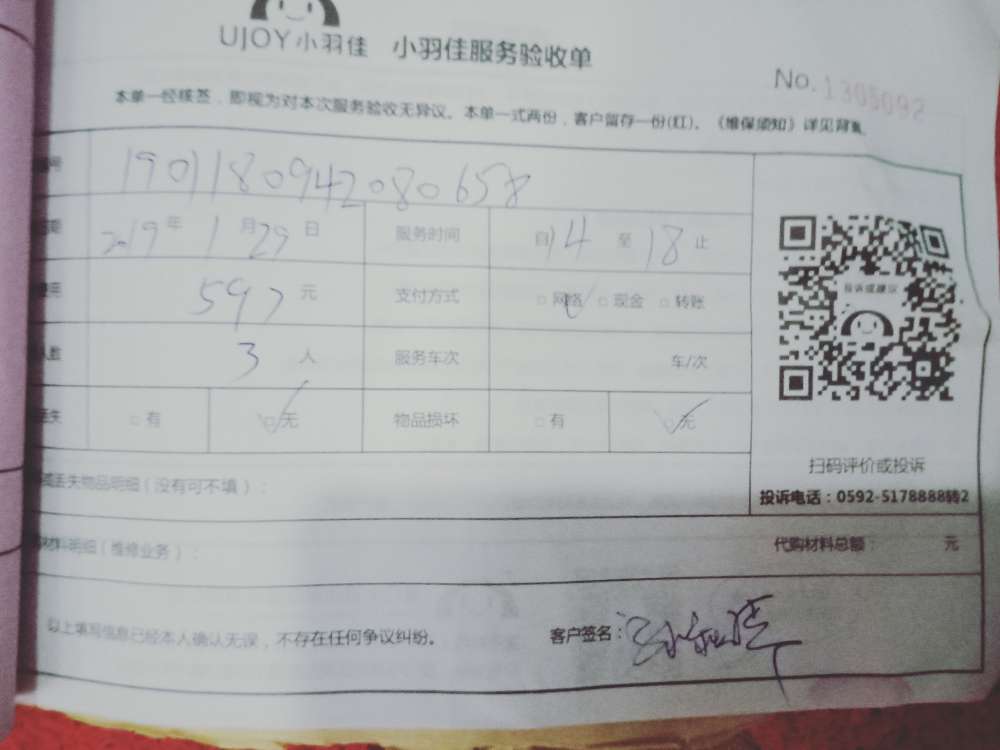 UJOY小羽佳 小羽佳服务验收单
No.1305092
本单一经核签，即视为对本次服务验收无异议。本单一式两份，客户留存一份(红)。《维保须知》详见背
号 190118094208 0658
期 2019年 1月29日 服务时间 自14 至18止
用 597元 支付方式 □网络 □现金 □转账
人数 3人 服务车次 车/次
丢失 □有 □无 物品损坏 □有 □无
投诉或建议
扫码评价或投诉
投诉电话：0592-5178888转2
或丢失物品明细（没有可不填）：
材料明细（维修业务）： 代购材料总额： 元
以上填写信息已经本人确认无误，不存在任何争议纠纷。 客户签名：